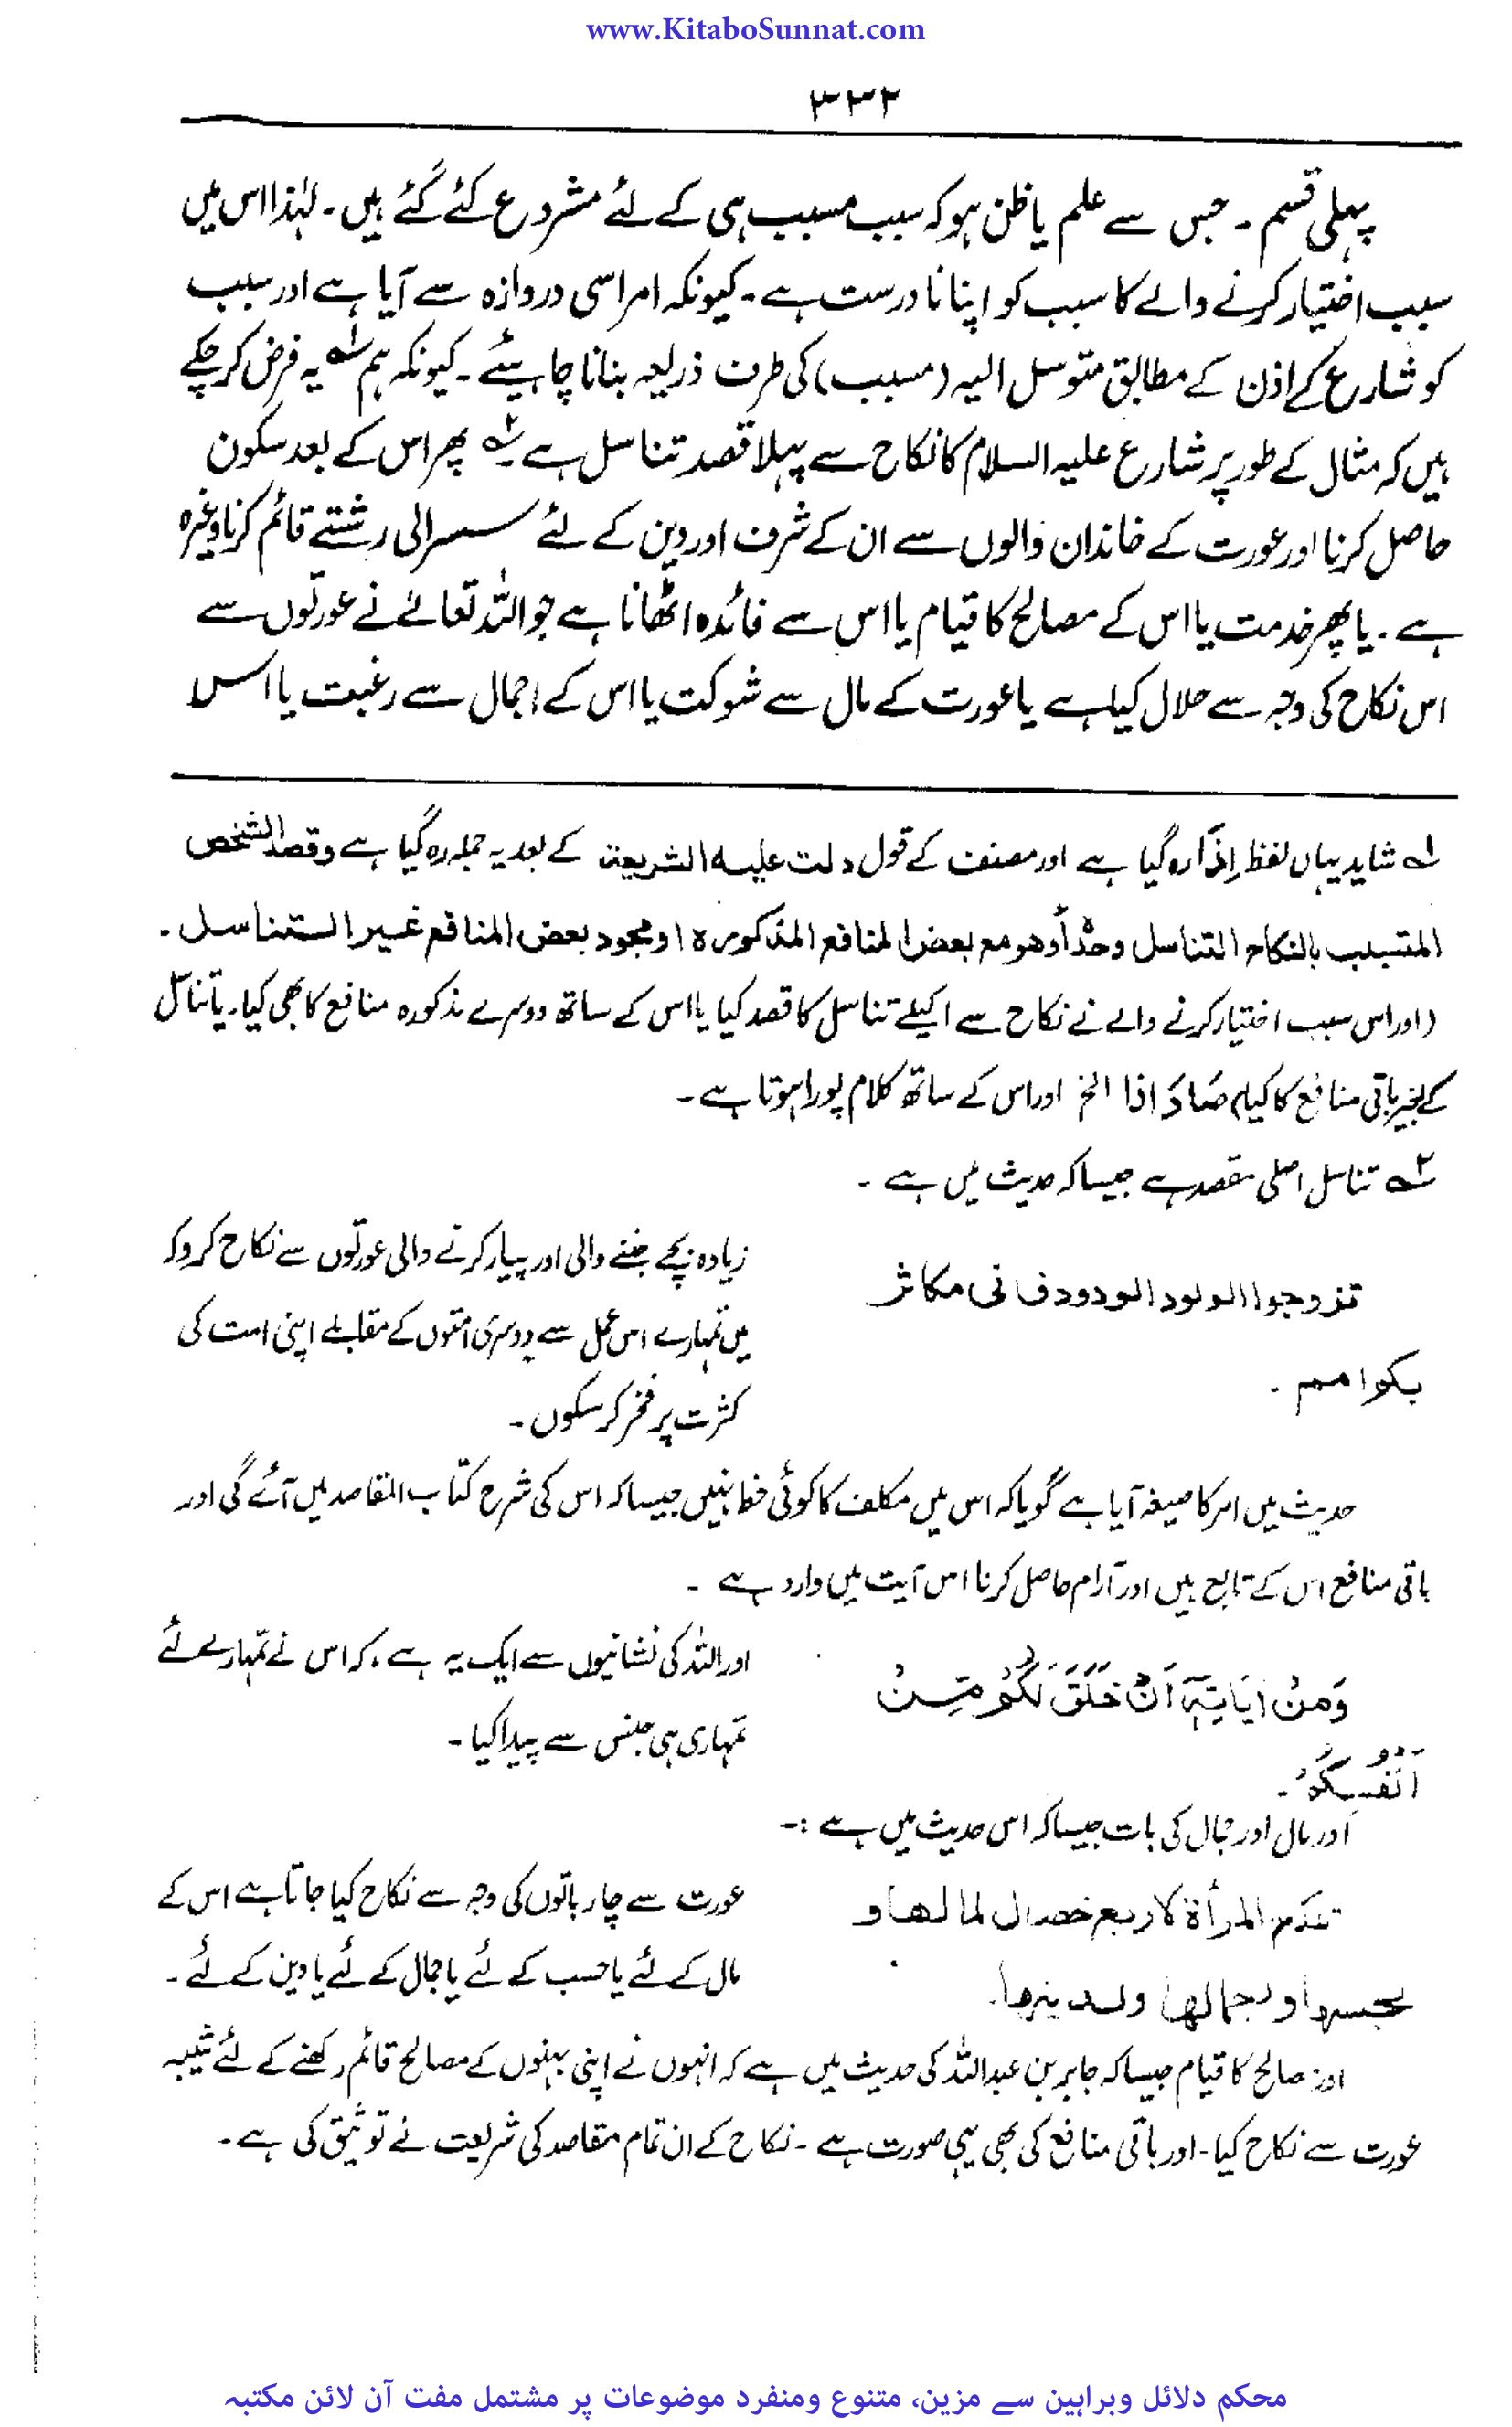 www.KitaboSunnat.com
۳۳۲
پہلی قسم ۔ جس سے علم یا ظن ہو کہ سبب مسبب ہی کے لئے مشروع کئے گئے ہیں۔ لہٰذا اس میں
سبب اختیار کرنے والے کا سبب کو اپنانا درست ہے۔ کیونکہ امر اسی دروازہ سے آیا ہے اور سبب
کو شارع کے اذن کے مطابق متوسل الیہ (مسبب) کی طرف ذریعہ بنانا چاہیئے ۔ کیونکہ ہم لہ یہ فرض کر چکے
ہیں کہ مثال کے طور پر شارع علیہ السلام کا نکاح سے پہلا قصد تناسل ہے ۲ہ پھر اس کے بعد سکون
حاصل کرنا اور عورت کے خاندان والوں سے ان کے شرف اور دین کے لئے سسرالی رشتے قائم کرنا وغیرہ
ہے ۔ یا پھر خدمت یا اس کے مصالح کا قیام یا اس سے فائدہ اٹھانا ہے جو اللہ تعالےٰ نے عورتوں سے
اس نکاح کی وجہ سے حلال کیا ہے یا عورت کے مال سے شوکت یا اس کے جمال سے رغبت یا اس
لہ شاید یہاں لفظ اِذًا رہ گیا ہے اور مصنف کے قول دلت علیہ الشریعۃ کے بعد یہ جملہ رہ گیا ہے وقصد الشخص
المتسبب بالنکاح التناسل وحدہ أو هو مع بعض المنافع المذکورہ او مجرد بعض المنافع غیر التناسل ۔
(اور اس سبب اختیار کرنے والے نے نکاح سے اکیلے تناسل کا قصد کیا یا اس کے ساتھ دوسرے مذکورہ منافع کا بھی کیا۔ یا تناسل
کے بغیر باقی منافع کا کیا) صَارَ اذا الخ اور اس کے ساتھ کلام پورا ہوتا ہے ۔
۲ہ تناسل اصلی مقصد ہے جیسا کہ حدیث میں ہے ۔
تزوجوا الولود الودود فانی مکاثر
بکم الامم ۔
زیادہ بچے جننے والی اور پیار کرنے والی عورتوں سے نکاح کرو کہ
میں تمہارے اس عمل سے دوسری امتوں کے مقابلے اپنی امت کی
کثرت پر فخر کر سکوں ۔
حدیث میں امر کا صیغہ آیا ہے گویا کہ اس میں مکلف کا کوئی حظ نہیں جیسا کہ اس کی شرح کتاب المقاصد میں آئے گی اور
باقی منافع اس کے تابع ہیں اور آرام حاصل کرنا اس آیت میں وارد ہے ۔
وَمِنْ اٰیَاتِہٖٓ اَنْ خَلَقَ لَکُمْ مِّنْ
اَنْفُسِکُمْ ۔
اور اللہ کی نشانیوں سے ایک یہ ہے ، کہ اس نے تمہارے لئے
تمہاری ہی جنس سے پیدا کیا ۔
اور مال اور جمال کی بات جیسا کہ اس حدیث میں ہے :۔
تنکح المرأۃ لاربع خصال لمالها و
لحسبها ولجمالها ولدینها۔
عورت سے چار باتوں کی وجہ سے نکاح کیا جاتا ہے اس کے
مال کے لئے یا حسب کے لئے یا جمال کے لئے یا دین کے لئے ۔
اور مصالح کا قیام جیسا کہ جابر بن عبداللہ کی حدیث میں ہے کہ انہوں نے اپنی بہنوں کے مصالح قائم رکھنے کے لئے ثیبہ
عورت سے نکاح کیا ۔ اور باقی منافع کی بھی یہی صورت ہے ۔ نکاح کے ان تمام مقاصد کی شریعت نے توثیق کی ہے ۔
محکم دلائل وبراہین سے مزین، متنوع ومنفرد موضوعات پر مشتمل مفت آن لائن مکتبہ